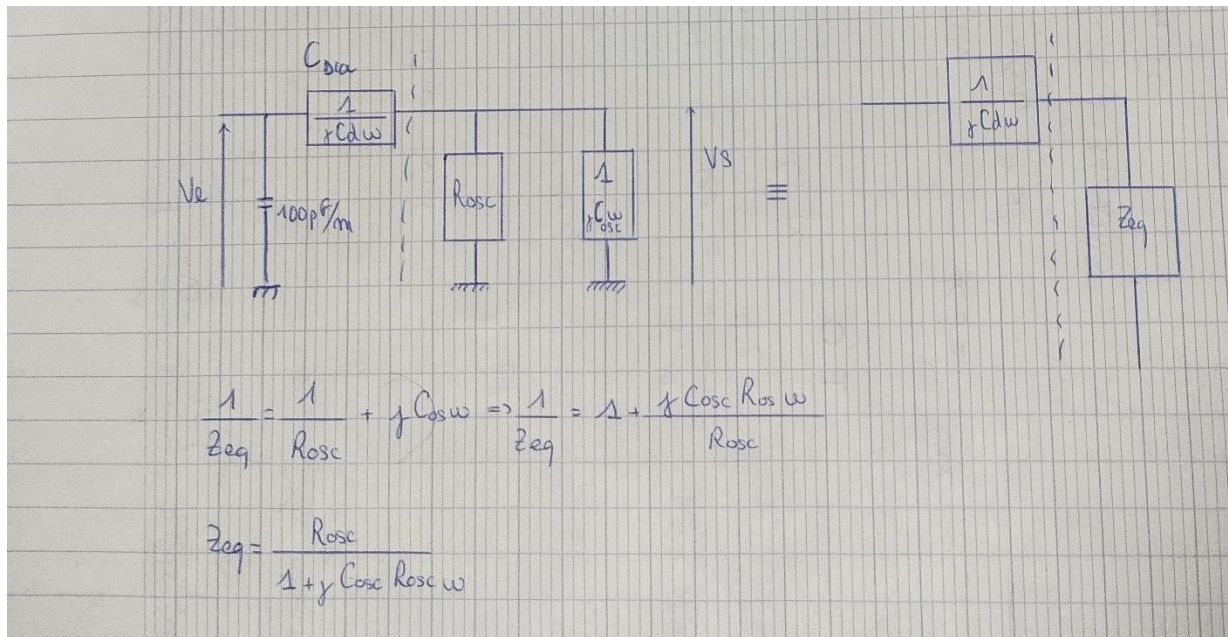 C_Dia
1/(jCdω)
1/(jCdω)
Ve
100pF/m
Rosc
1/(jCoscω)
VS
≡
Zeq
1/Zeq = 1/Rosc + jCosω => 1/Zeq = 1 + (jCosc Ros ω)/Rosc
Zeq = Rosc/(1+jCosc Rosc ω)